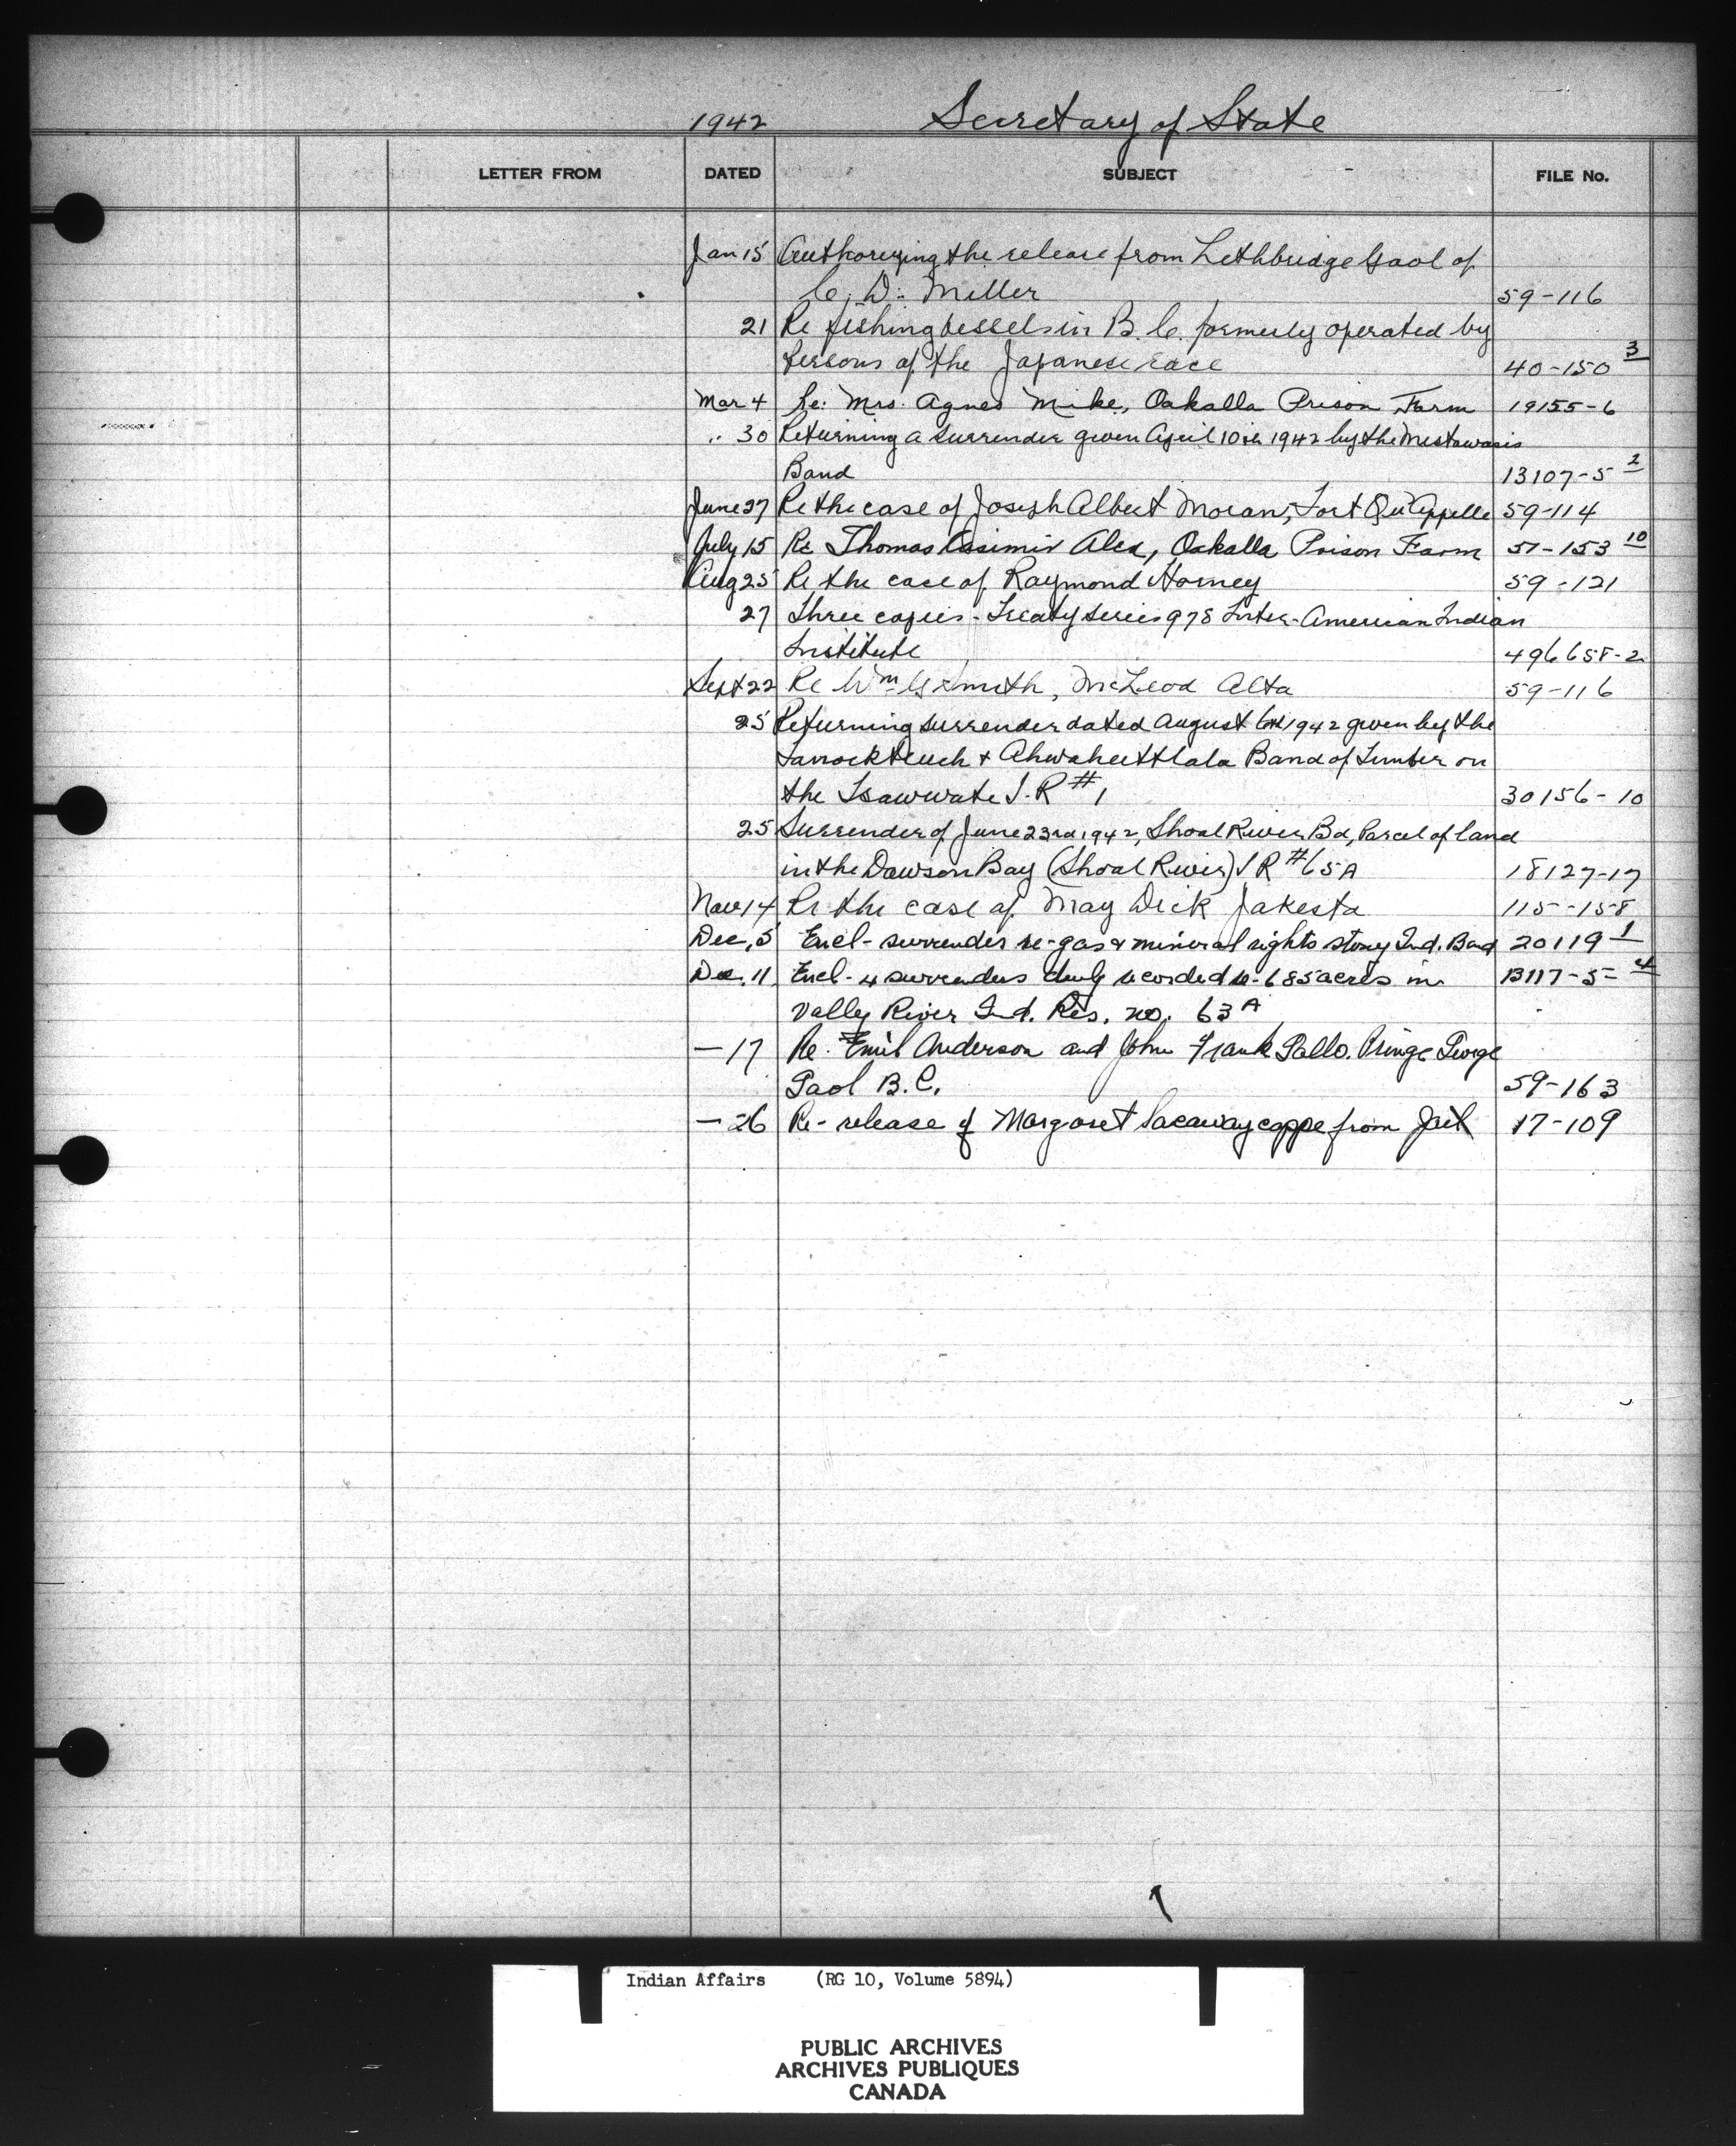 1942 Secretary of State
LETTER FROM DATED SUBJECT FILE No.
Jan 15 Authorizing the release from Lethbridge Gaol of
C. D. Miller 59-116
21 Re fishing vessels in B.C. formerly operated by
persons of the Japanese race 40-150 3
Mar 4 Re: Mrs. Agnes Mike, Oakalla Prison Farm 19155-6
" 30 Returning a surrender given April 10th 1942 by the Mistawasis
Band 13107-5 2
June 27 Re the case of Joseph Albert Moran, Fort Qu'Appelle 59-114
July 15 Re Thomas Casimir Alex, Oakalla Prison Farm 51-153 10
Aug 25 Re the case of Raymond Horney 59-121
27 Three copies - Treaty Series 978 Inter-American Indian
Institute 496658-2
Sept 22 Re Wm G Smith, McLeod Alta 59-116
25 Returning surrender dated August 6th 1942 given by the
& Band of Timber on
the I.R #1 30156-10
25 Surrender of June 23rd 1942, Shoal River Bd, Parcel of land
in the Dawson Bay (Shoal River) I R #65A 18127-17
Nov 14 Re the case of May Dick Jakesta 115-158
Dec, 5 Encl- surrender re-gas & mineral rights Stony Ind. Band 20119 1
Dec. 11 Encl- 4 surrenders duly recorded re-685 acres in 13117-5- 4
Valley River Ind. Res. no. 63A
— 17 Re. Emil Anderson and John Frank Pallo. Prince George
Gaol B.C. 59-163
— 26 Re- release of Margaret from Jail 17-109
Indian Affairs (RG 10, Volume 5894)
PUBLIC ARCHIVES
ARCHIVES PUBLIQUES
CANADA